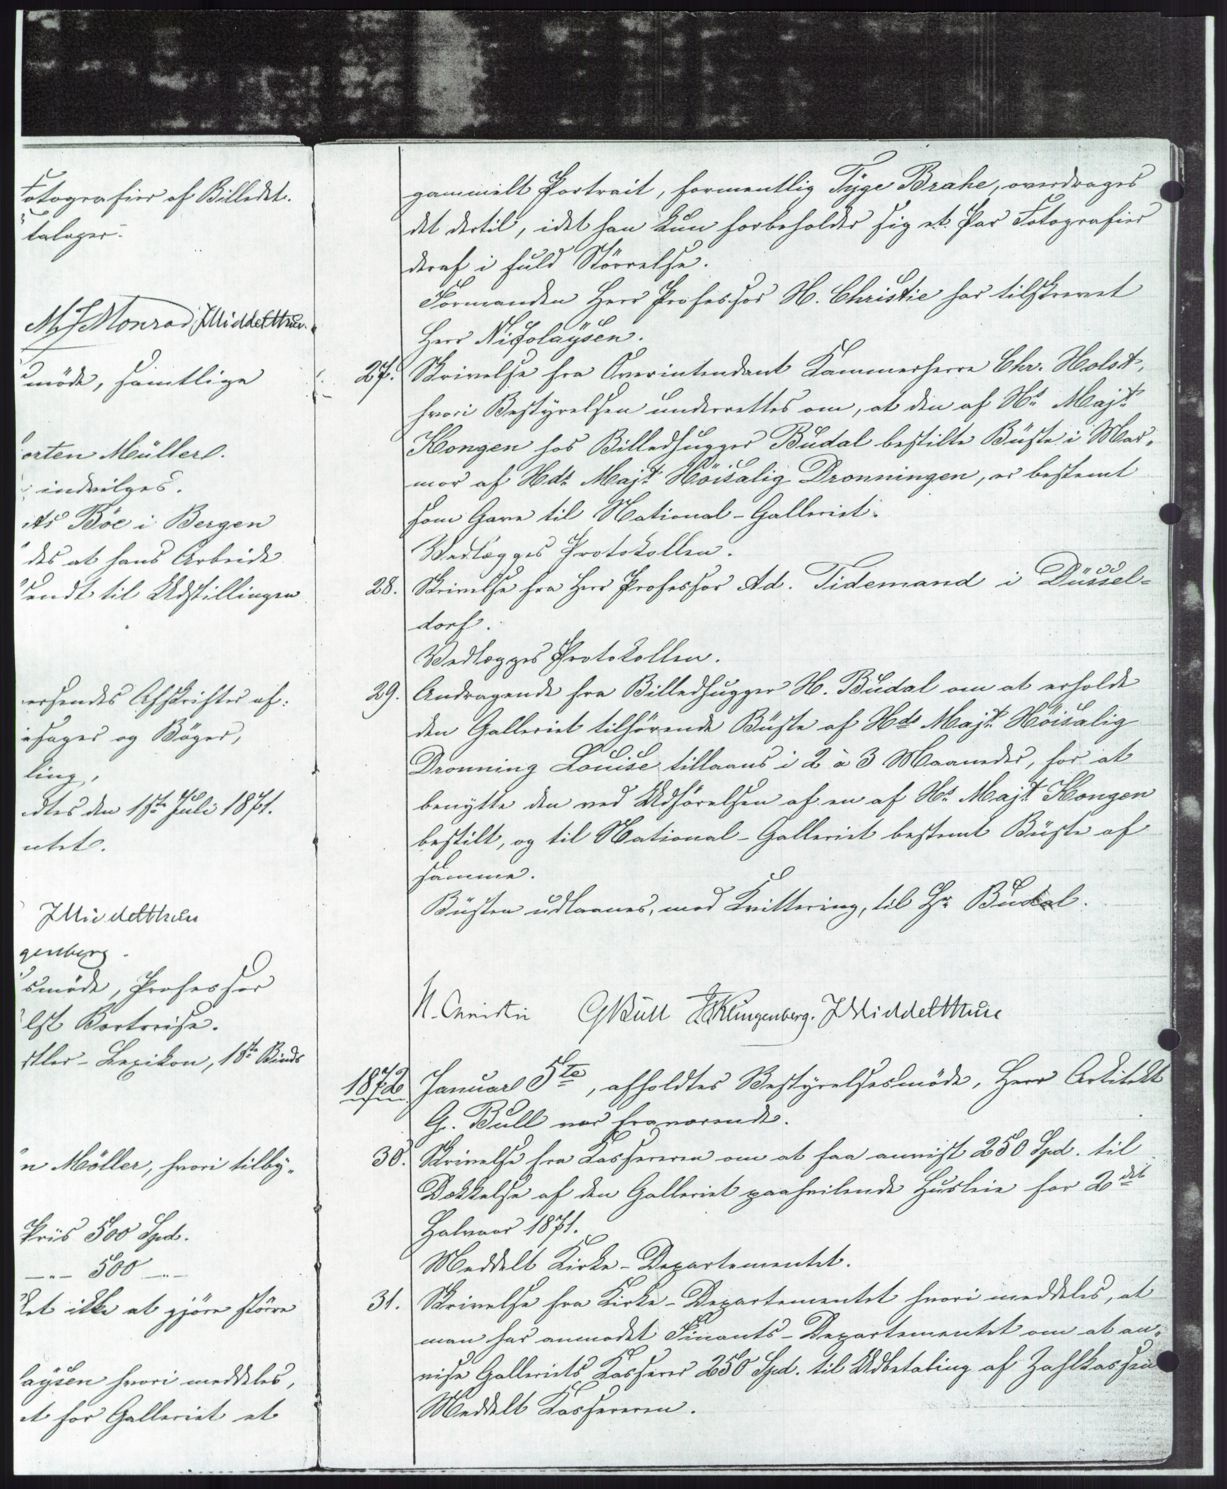 Fotografier af Billedet.
talager.
M J Monrad. J Middelthun.
møde, samtlige
orten Müller.
indvilges.
ts Böe i Bergen
des at hans Arbeide
sendt til Udstillingen
ersendes Afskrifter af:
sager og Bøger,
ling,
dtes den 1ste Juli 1871.
ntet.
J Middelthun
genberg.
smøde, Professor
lst Bortreise.
stler-Lexikon, 18de Binds
n Möller, hvori tilby-
Priis 500 Spd.
—"— 500 —"—
et ikke at gjøre større
aysen hvori meddeles,
et for Galleriet et
gammelt Portrait, formentlig Tyge Brahe, overdrages
det dertil, idet han kun forbeholder sig et Par Fotografier
deraf i fuld Störrelse.
Formanden Herr Professor H. Christie har tilskrevet
Herr Nikolaysen.
27. Skrivelse fra Overintendant Kammerherre Chr. Holst,
hvori Bestyrelsen underrettes om, at den af Hs Majt
Kongen hos Billedhugger Budal bestilte Büste i Mar-
mor af Hds Majt Höisalig Dronningen, er bestemt
som Gave til National-Galleriet.
Vedlægges Protokollen.
28. Skrivelse fra Herr Professor Ad. Tidemand i Düssel-
dorf.
Vedlægges Protokollen.
29. Andragende fra Billedhugger H. Budal om at erholde
den Galleriet tilhörende Büste af Hds Majt Höisalig
Dronning Louise tillaans i 2 à 3 Maaneder, for at
benytte den ved Udförelsen af en af Hs Majt Kongen
bestilt, og til National-Galleriet bestemt Büste af
samme.
Büsten udlaanes, mod Kvittering, til Hr Budal.
H. Christie G Bull F Klingenberg. J Middelthun
1872 Januar 5te, afholdtes Bestyrelsesmöde, Herr Arkitekt
G. Bull var fraværende.
30. Skrivelse fra Kassereren om at faa anvist 250 Spd. til
Dækkelse af den Galleriet paahvilende Husleie for 2det
Halvaar 1871.
Meddelt Kirke-Departementet.
31. Skrivelse fra Kirke-Departementet hvori meddeles, at
man har anmodet Finants-Departementet om at an-
vise Galleriets Kasserer 250 Spd. til Udbetaling af Zahlkassen
Meddelt Kassereren.